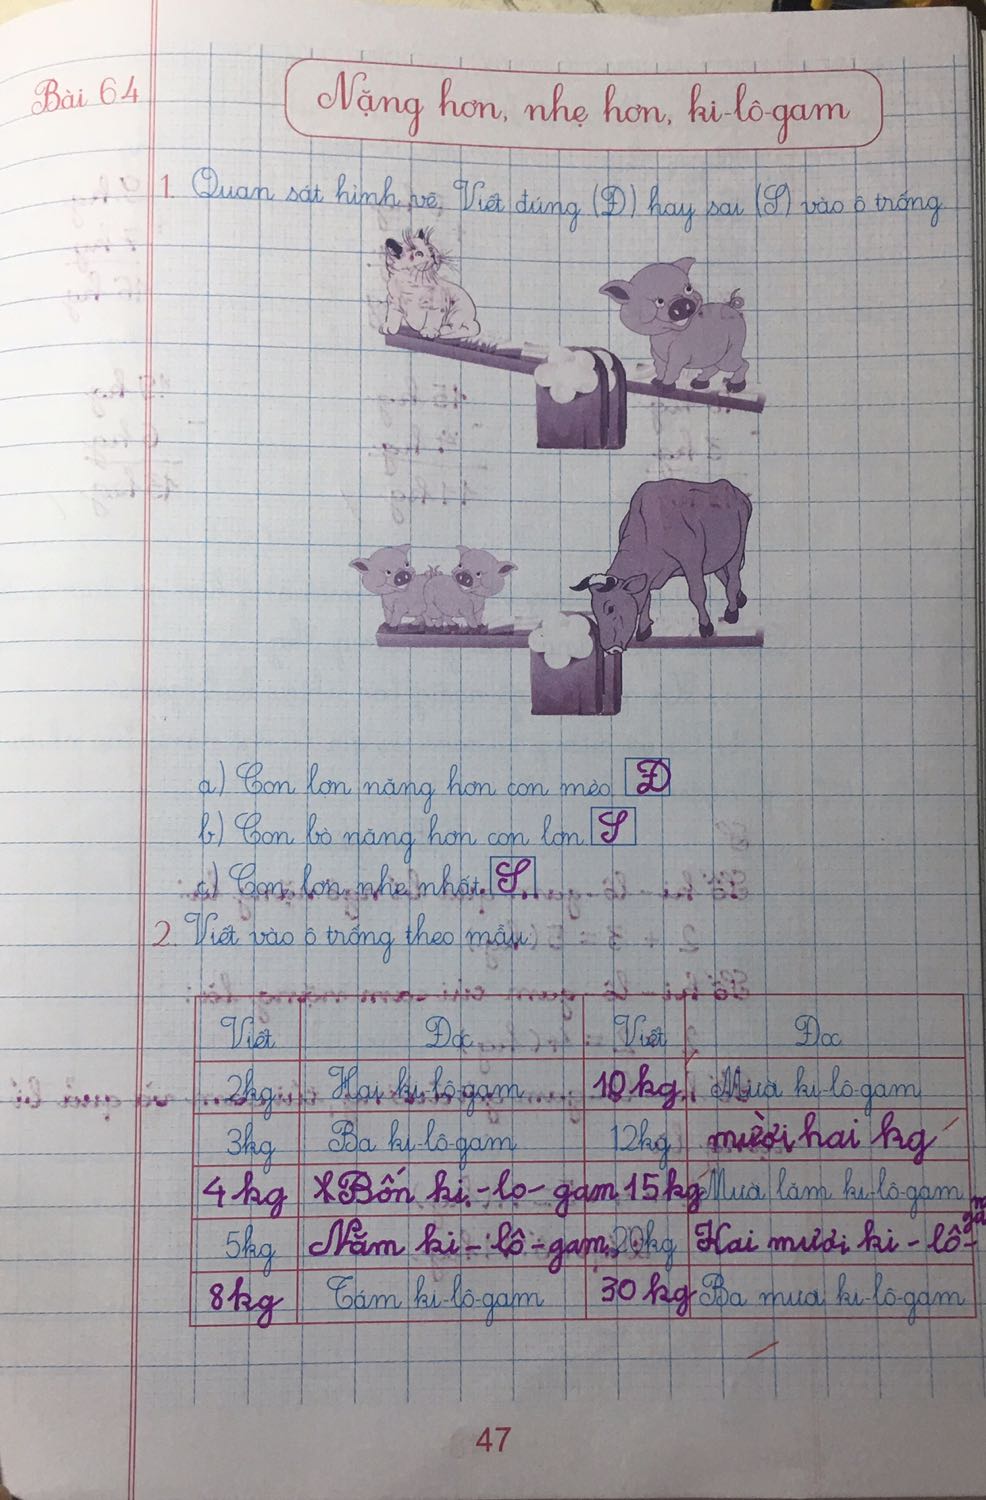 Bài 64
Nặng hơn, nhẹ hơn, ki-lô-gam
1. Quan sát hình vẽ. Viết đúng (Đ) hay sai (S) vào ô trống
a) Con lợn nặng hơn con mèo Đ
b) Con bò nặng hơn con lợn. S
c) Con lợn nhẹ nhất. S
2. Viết vào ô trống theo mẫu:
Viết Đọc Viết Đọc
2kg Hai ki-lô-gam 10kg Mười ki-lô-gam
3kg Ba ki-lô-gam 12kg mười hai kg
4kg Bốn ki-lo-gam 15kg Mười lăm ki-lô-gam
5kg Năm ki-lô-gam 20kg Hai mươi ki-lô-gam
8kg Tám ki-lô-gam 30kg Ba mươi ki-lô-gam
47